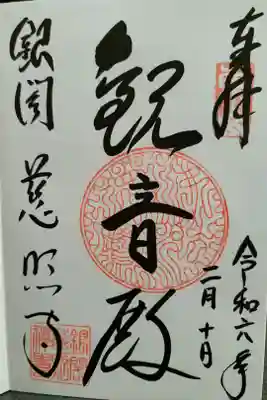 奉拝
令和六年
二月十日
観音殿
銀閣 慈照寺